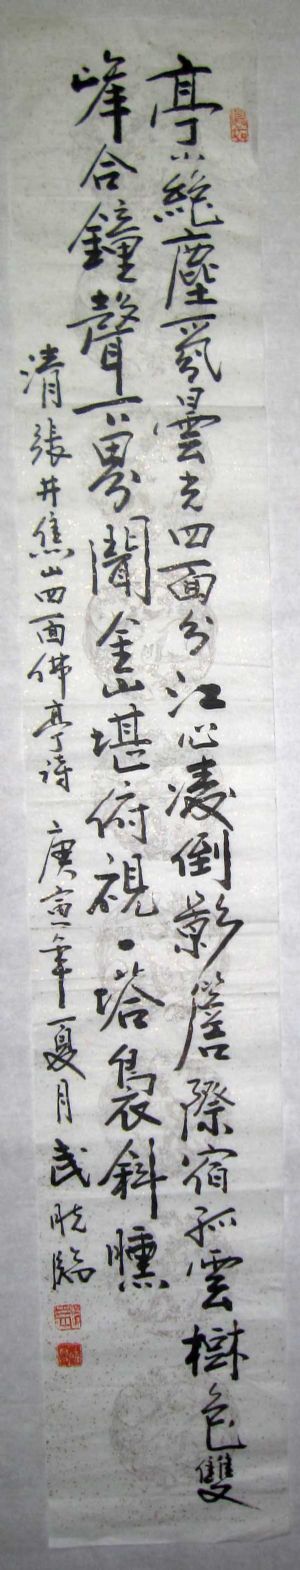 亭小絶塵氛曇光四面分江心凌倒影簷際宿孤雲樹色雙
峰合鐘聲下界聞金山堪俯視一塔裊斜曛
清張井焦山四面佛亭詩 庚寅年夏月武